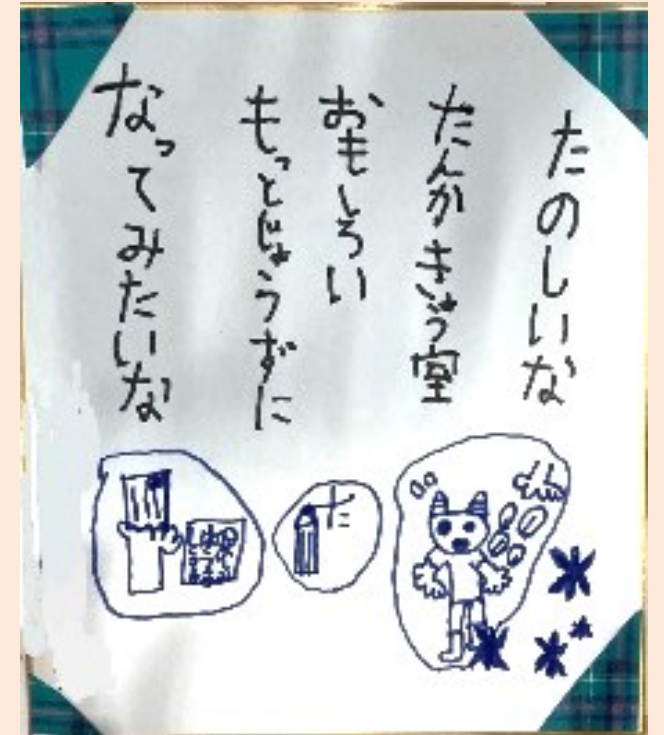 たのしいな
たんかきょう室
おもしろい
もっとじょうずに
なってみたいな
た